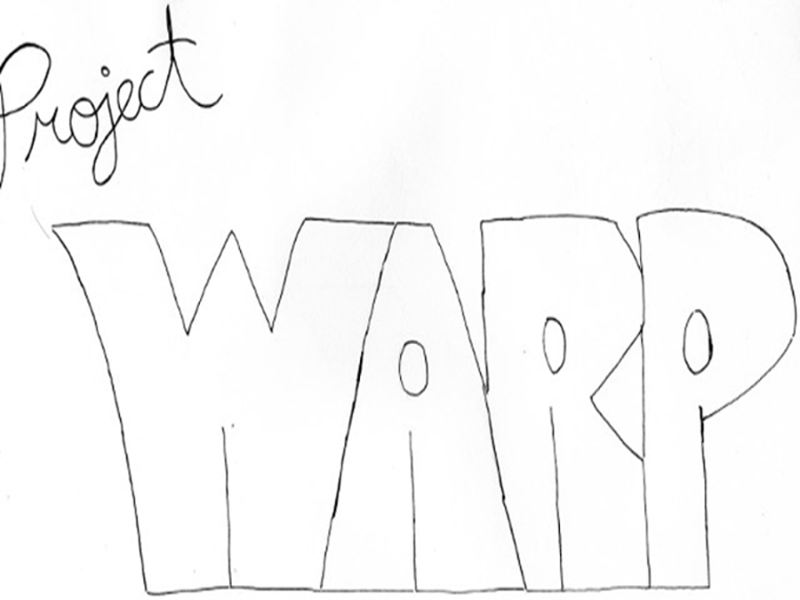 Project
WARP